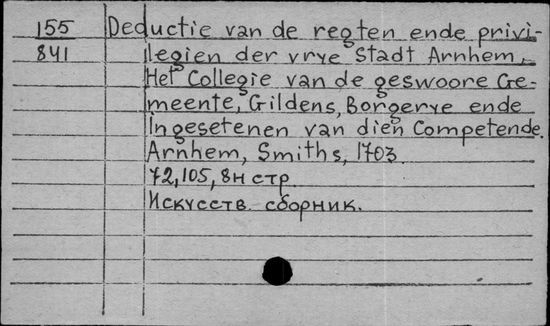 155 Deductie van de regten ende privi-
841 legien der vrye Stadt Arnhem,
Het Collegie van de geswoore Ge-
meente, Gildens, Borgerye ende
Ingesetenen van dien Competende.
Arnhem, Smiths, 1703
72, 105, 8н стр
Искусств. сборник.